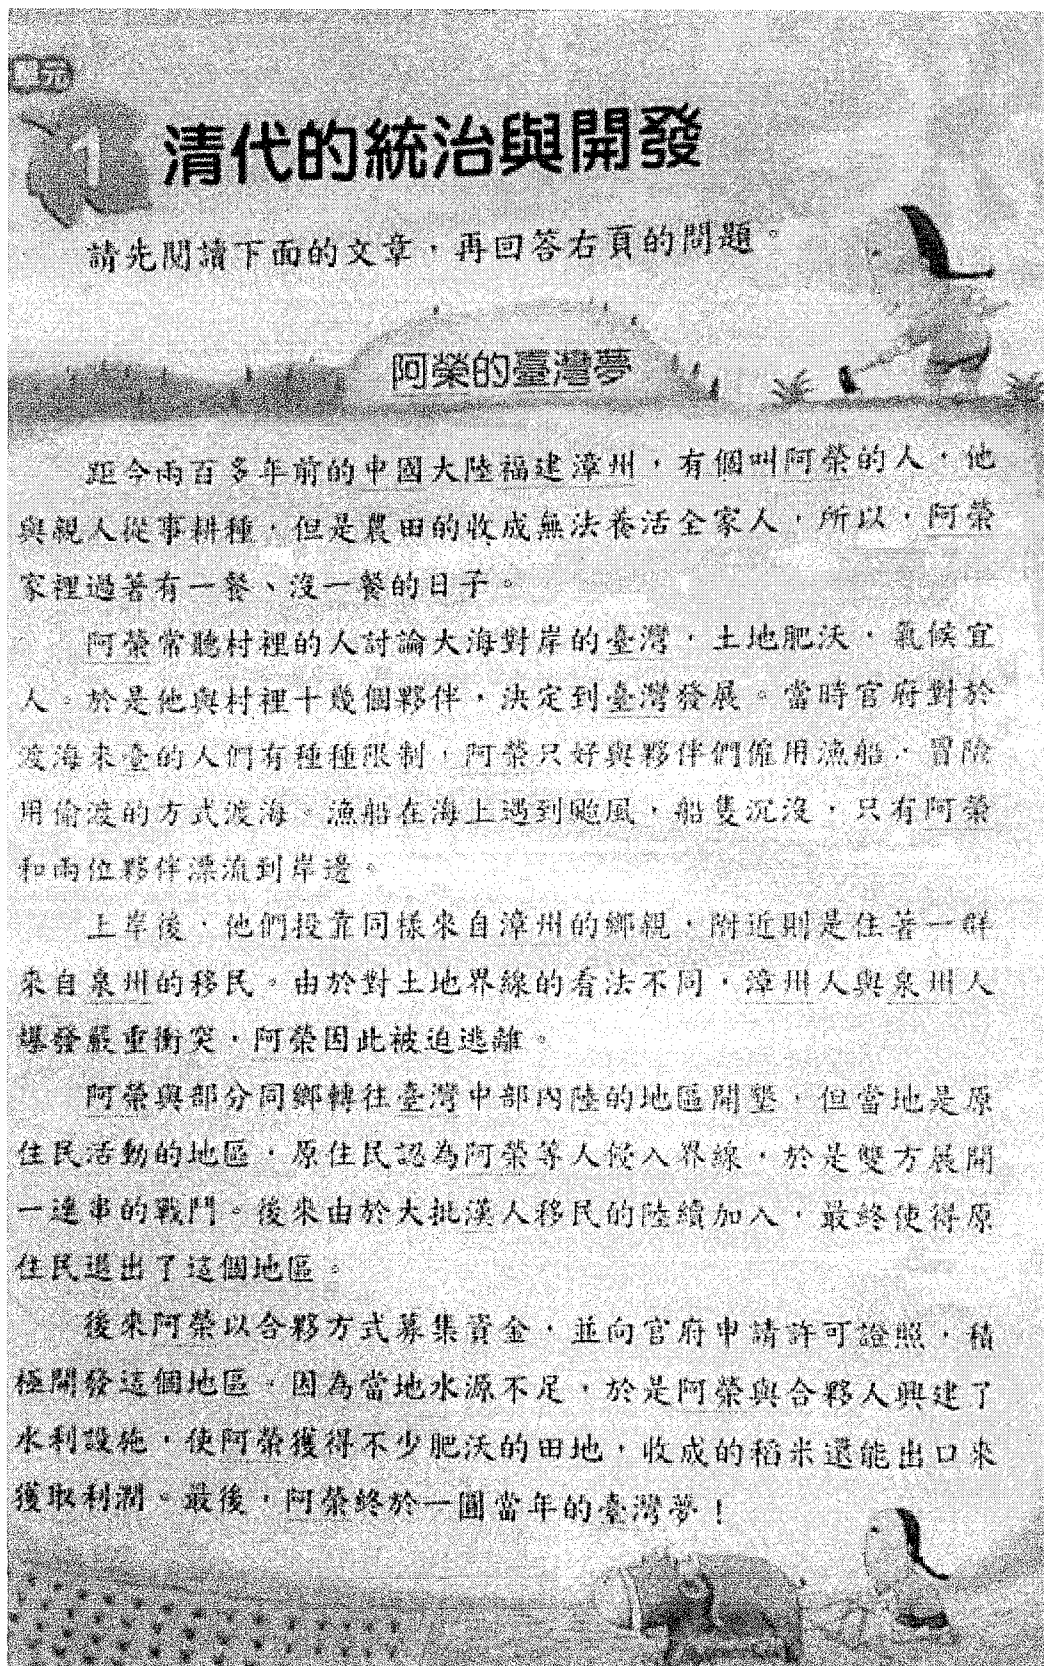 單元
1
清代的統治與開發
請先閱讀下面的文章，再回答右頁的問題。
阿榮的臺灣夢
距今兩百多年前的中國大陸福建漳州，有個叫阿榮的人，他
與親人從事耕種，但是農田的收成無法養活全家人，所以，阿榮
家裡過著有一餐、沒一餐的日子。
阿榮常聽村裡的人討論大海對岸的臺灣，土地肥沃，氣候宜
人。於是他與村裡十幾個夥伴，決定到臺灣發展。當時官府對於
渡海來臺的人們有種種限制，阿榮只好與夥伴們僱用漁船，冒險
用偷渡的方式渡海。漁船在海上遇到颱風，船隻沉沒，只有阿榮
和兩位夥伴漂流到岸邊。
上岸後，他們投靠同樣來自漳州的鄉親，附近則是住著一群
來自泉州的移民。由於對土地界線的看法不同，漳州人與泉州人
爆發嚴重衝突，阿榮因此被迫逃離。
阿榮與部分同鄉轉往臺灣中部內陸的地區開墾，但當地是原
住民活動的地區，原住民認為阿榮等人侵入界線，於是雙方展開
一連串的戰鬥。後來由於大批漢人移民的陸續加入，最終使得原
住民退出了這個地區。
後來阿榮以合夥方式募集資金，並向官府申請許可證照，積
極開發這個地區。因為當地水源不足，於是阿榮與合夥人興建了
水利設施，使阿榮獲得不少肥沃的田地，收成的稻米還能出口來
獲取利潤。最後，阿榮終於一圓當年的臺灣夢！